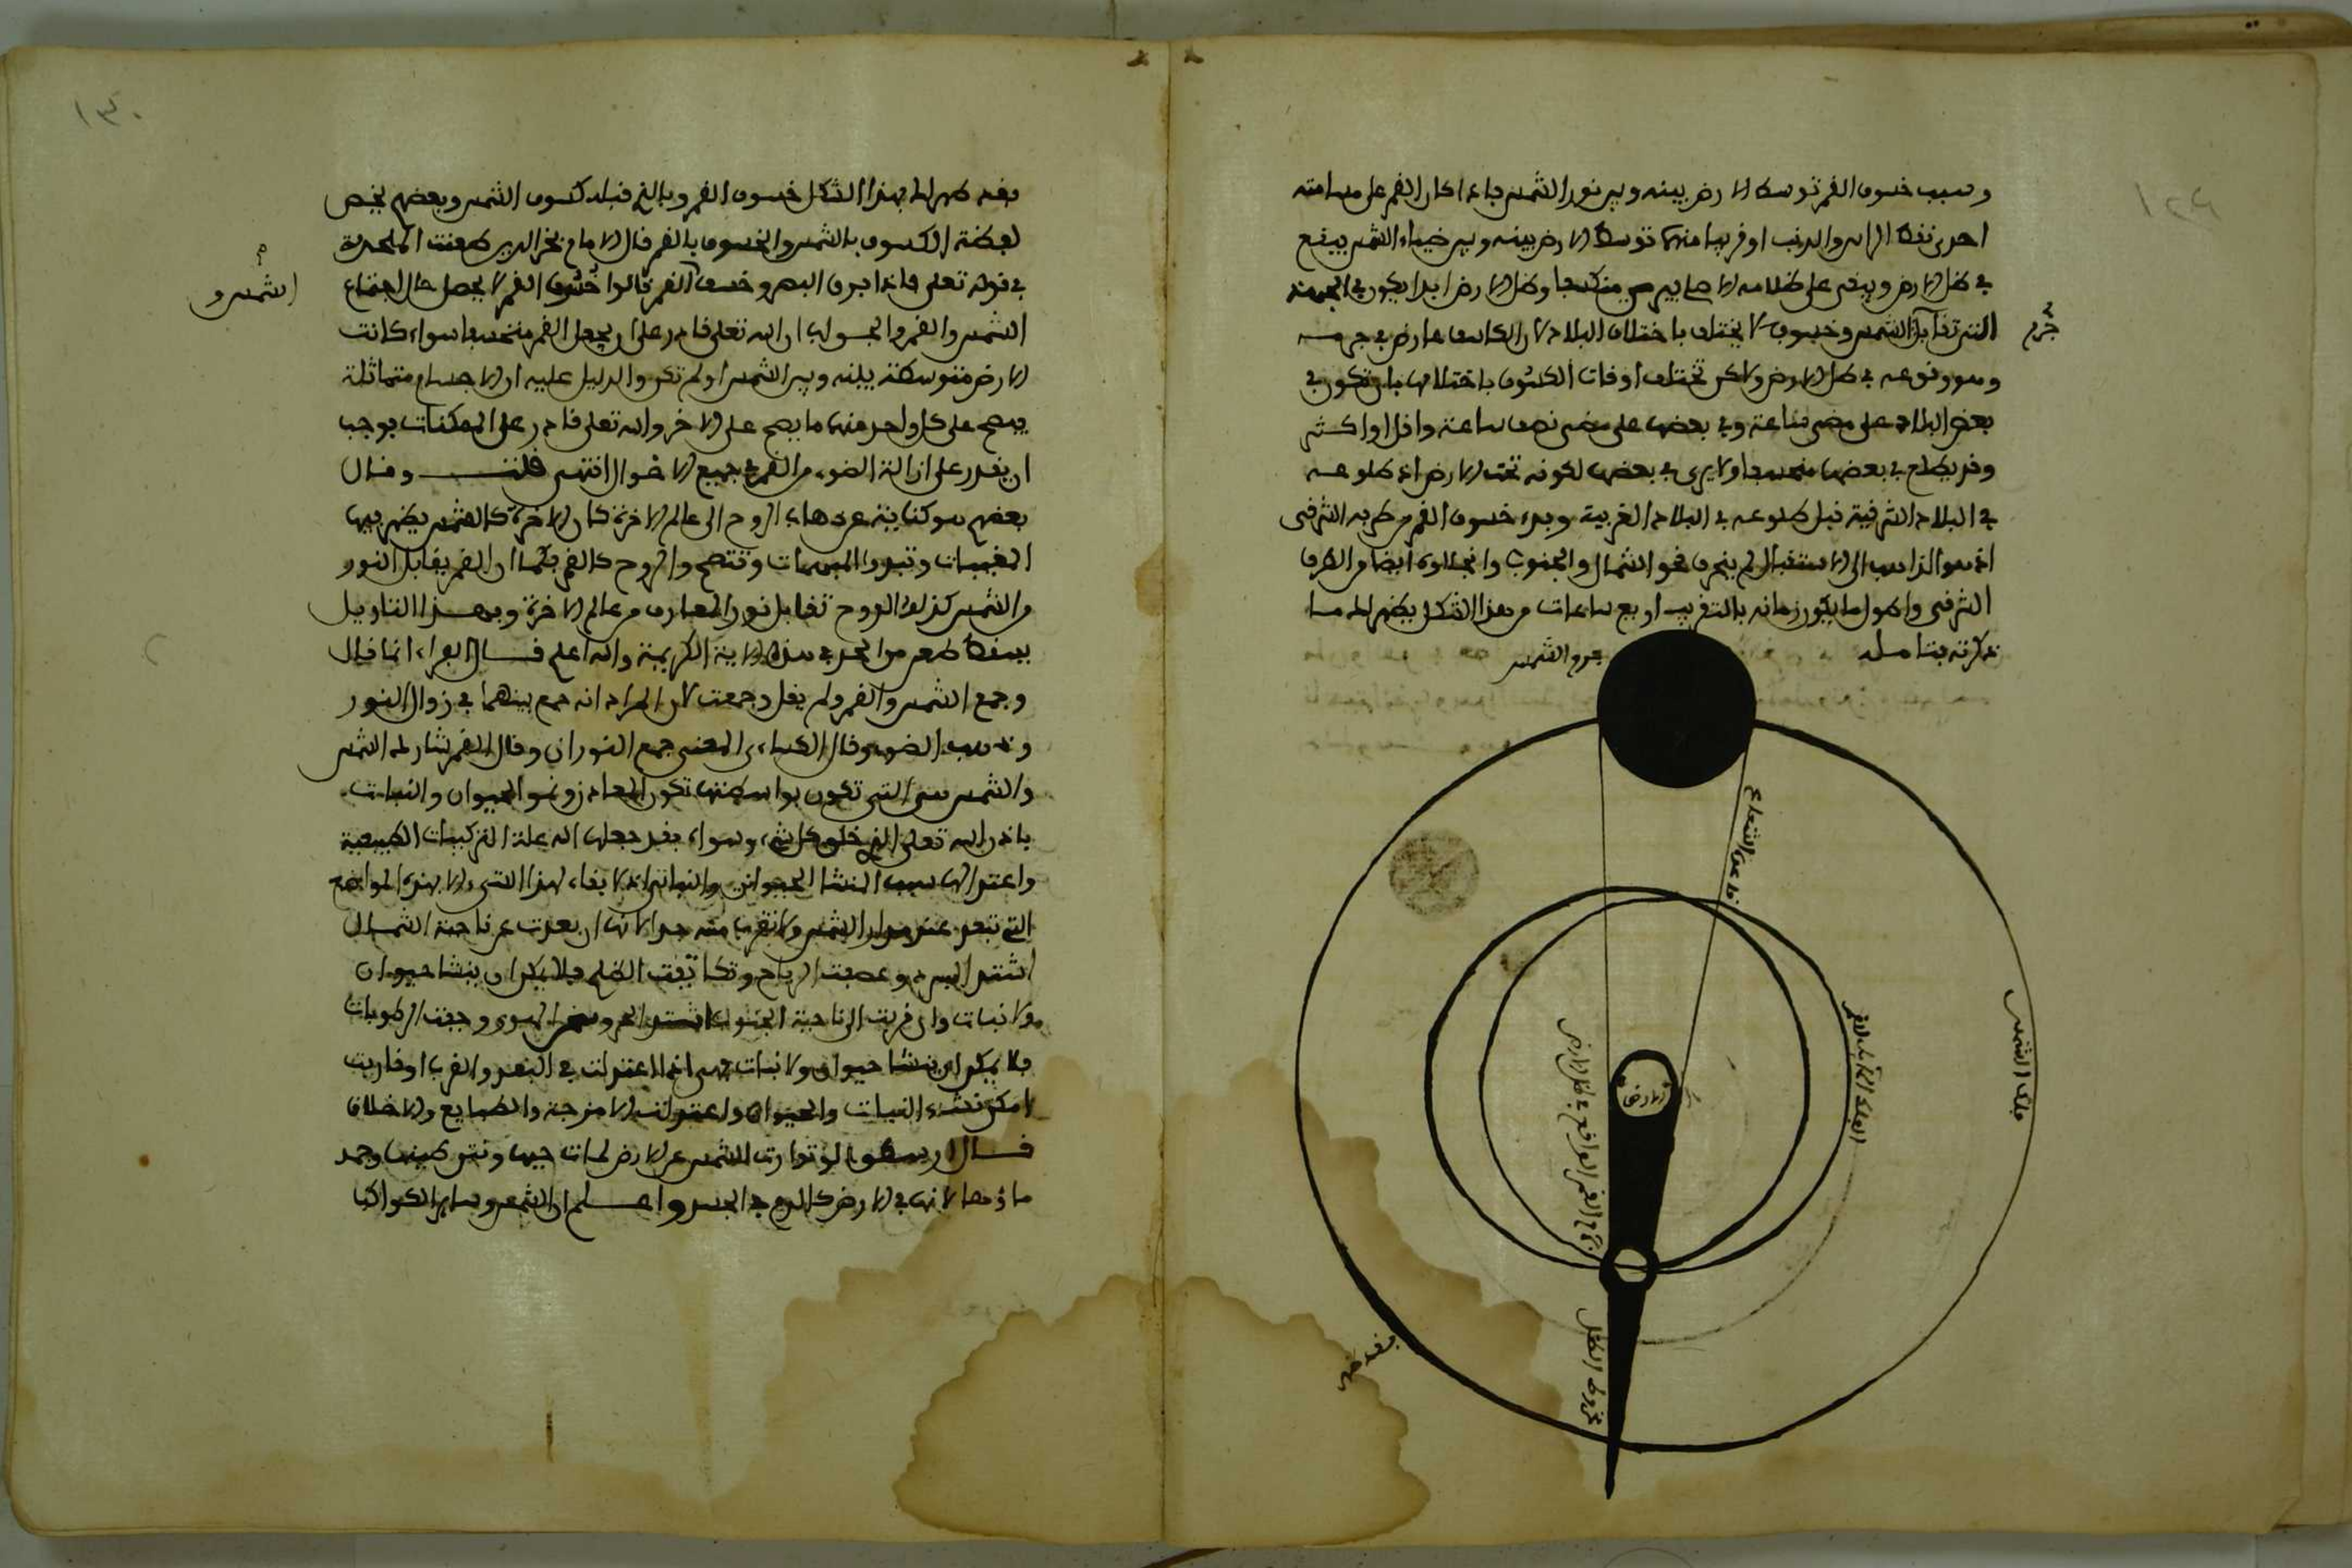 ١٢٩
وسبب خسوف القمر توسط الارض بينه وبين نور الشمس فاذا كان القمر على مسامتة
احدى نقط الراس والذنب او قريبا منها توسط الارض بينه وبين ضياء الشمس فيقع
في ظل الارض ويبقى على ظلامه الاصلي فيرى منكسفا وظل الارض ابدا يكون في الجهة
التي تقابل الشمس وخسوفه لا يختلف باختلاف البلاد لان الكاسف عارض في جرمه
جرم
وهو وقوعه في ظل الارض ولاكن تختلف اوقات الكسوف باختلافها بان تكون في
بعض البلاد على مضي ساعة وفي بعضها على مضي نصف ساعة واقل او اكثر
وقد يطلع في بعضها منخسفا ولا يرى في بعضها لكونه تحت الارض اذ طلوعه
في البلاد الشرقية قبل طلوعه في البلاد الغربية وبدء خسوف القمر من طرفه الشرقي
اذ هو الذاهب الى الاستقبال ثم ينحرف نحو الشمال او الجنوب وانجلاؤه ايضا من الطرف
الشرقي واطول ما يكون زمانه بالتقريب اربع ساعات ومن هذا الشكل يظهر لك ما
ذكرته بتامله
جرم الشمس
خط شعاع الشمس
فلك الشمس
الفلك المائل للقمر
الارض
جرم القمر الواقع في ظل الارض
مخروط الظل
فقد ظهر
١٣٠
فقد ظهر لك بهذا الشكل خسوف القمر وبالذي قبله كسوف الشمس وبعضهم يخص
لفظة الكسوف بالشمس والخسوف بالقمر قال الامام فخر الدين طعنت الملحدة
في قوله تعلى فاذا برق البصر وخسف القمر قالوا خسوف القمر لا يحصل حال اجتماع
الشمس و
الشمس والقمر والجواب ان الله تعلى قادر على ان يجعل القمر منخسفا سواء كانت
الارض متوسطة بينه وبين الشمس او لم تكن والدليل عليه ان الاجسام متماثلة
فيصح على كل واحد منها ما يصح على الاخر والله تعلى قادر على الممكنات فوجب
ان يقدر على ازالة الضوء من القمر في جميع الاحوال انتهى قلت وقال
بعضهم هو كناية عن ذهاب الروح الى عالم الاخرة كان الاخرة كالشمس يظهر فيها
المغيبات وتبدو المبهمات وتتضح والروح كالقمر فكما ان القمر يقابل النور
من الشمس كذلك الروح تقابل نور المعارف من عالم الاخرة وبهذا التاويل
يسقط طعن من الحد في هذه الاية الكريمة والله اعلم قال الفراء انما قال
وجمع الشمس والقمر ولم يقل وجمعت لان المراد انه جمع بينهما في زوال النور
وذهاب الضوء وقال الكسائي المعنى جمع النوران وقال القمر شارك الشمس
والشمس هي التي تكون بواسطتها تكون المعادن ونمو الحيوان والنبات
باذن الله تعلى الذي خلق كل شيء وسواه فقد جعلها الله علة التركيبات الطبيعية
واعتدالها سبب النشا الحيواني والنباتي اذ لا بقاء لهذا النشء الا بهذه المواضع
التي تبعد عن مدار الشمس ولا تقرب منه جدا لانها ان بعدت عن ناحية الشمال
اشتد البرد وعصفت الرياح وتكاثفت الظلم فلا يمكن ان ينشا حيوان
ولا نبات وان قربت الى ناحية الجنوب اشتد الحر وسخن الهوى وجفت الرطوبات
فلا يمكن ان ينشا حيوان ولا نبات فهي اذا اعتدلت في البعد والقرب او قاربت
امكن نشء النبات والحيوان واعتدلت الامزجة والطبايع والاخلاق
قال ارسطو لو توارت الشمس عن الارض لمات حيها ونتن طينها وجمد
ماؤها لانها في الارض كالروح في الجسد واعلم ان الشمس وساير الكواكب